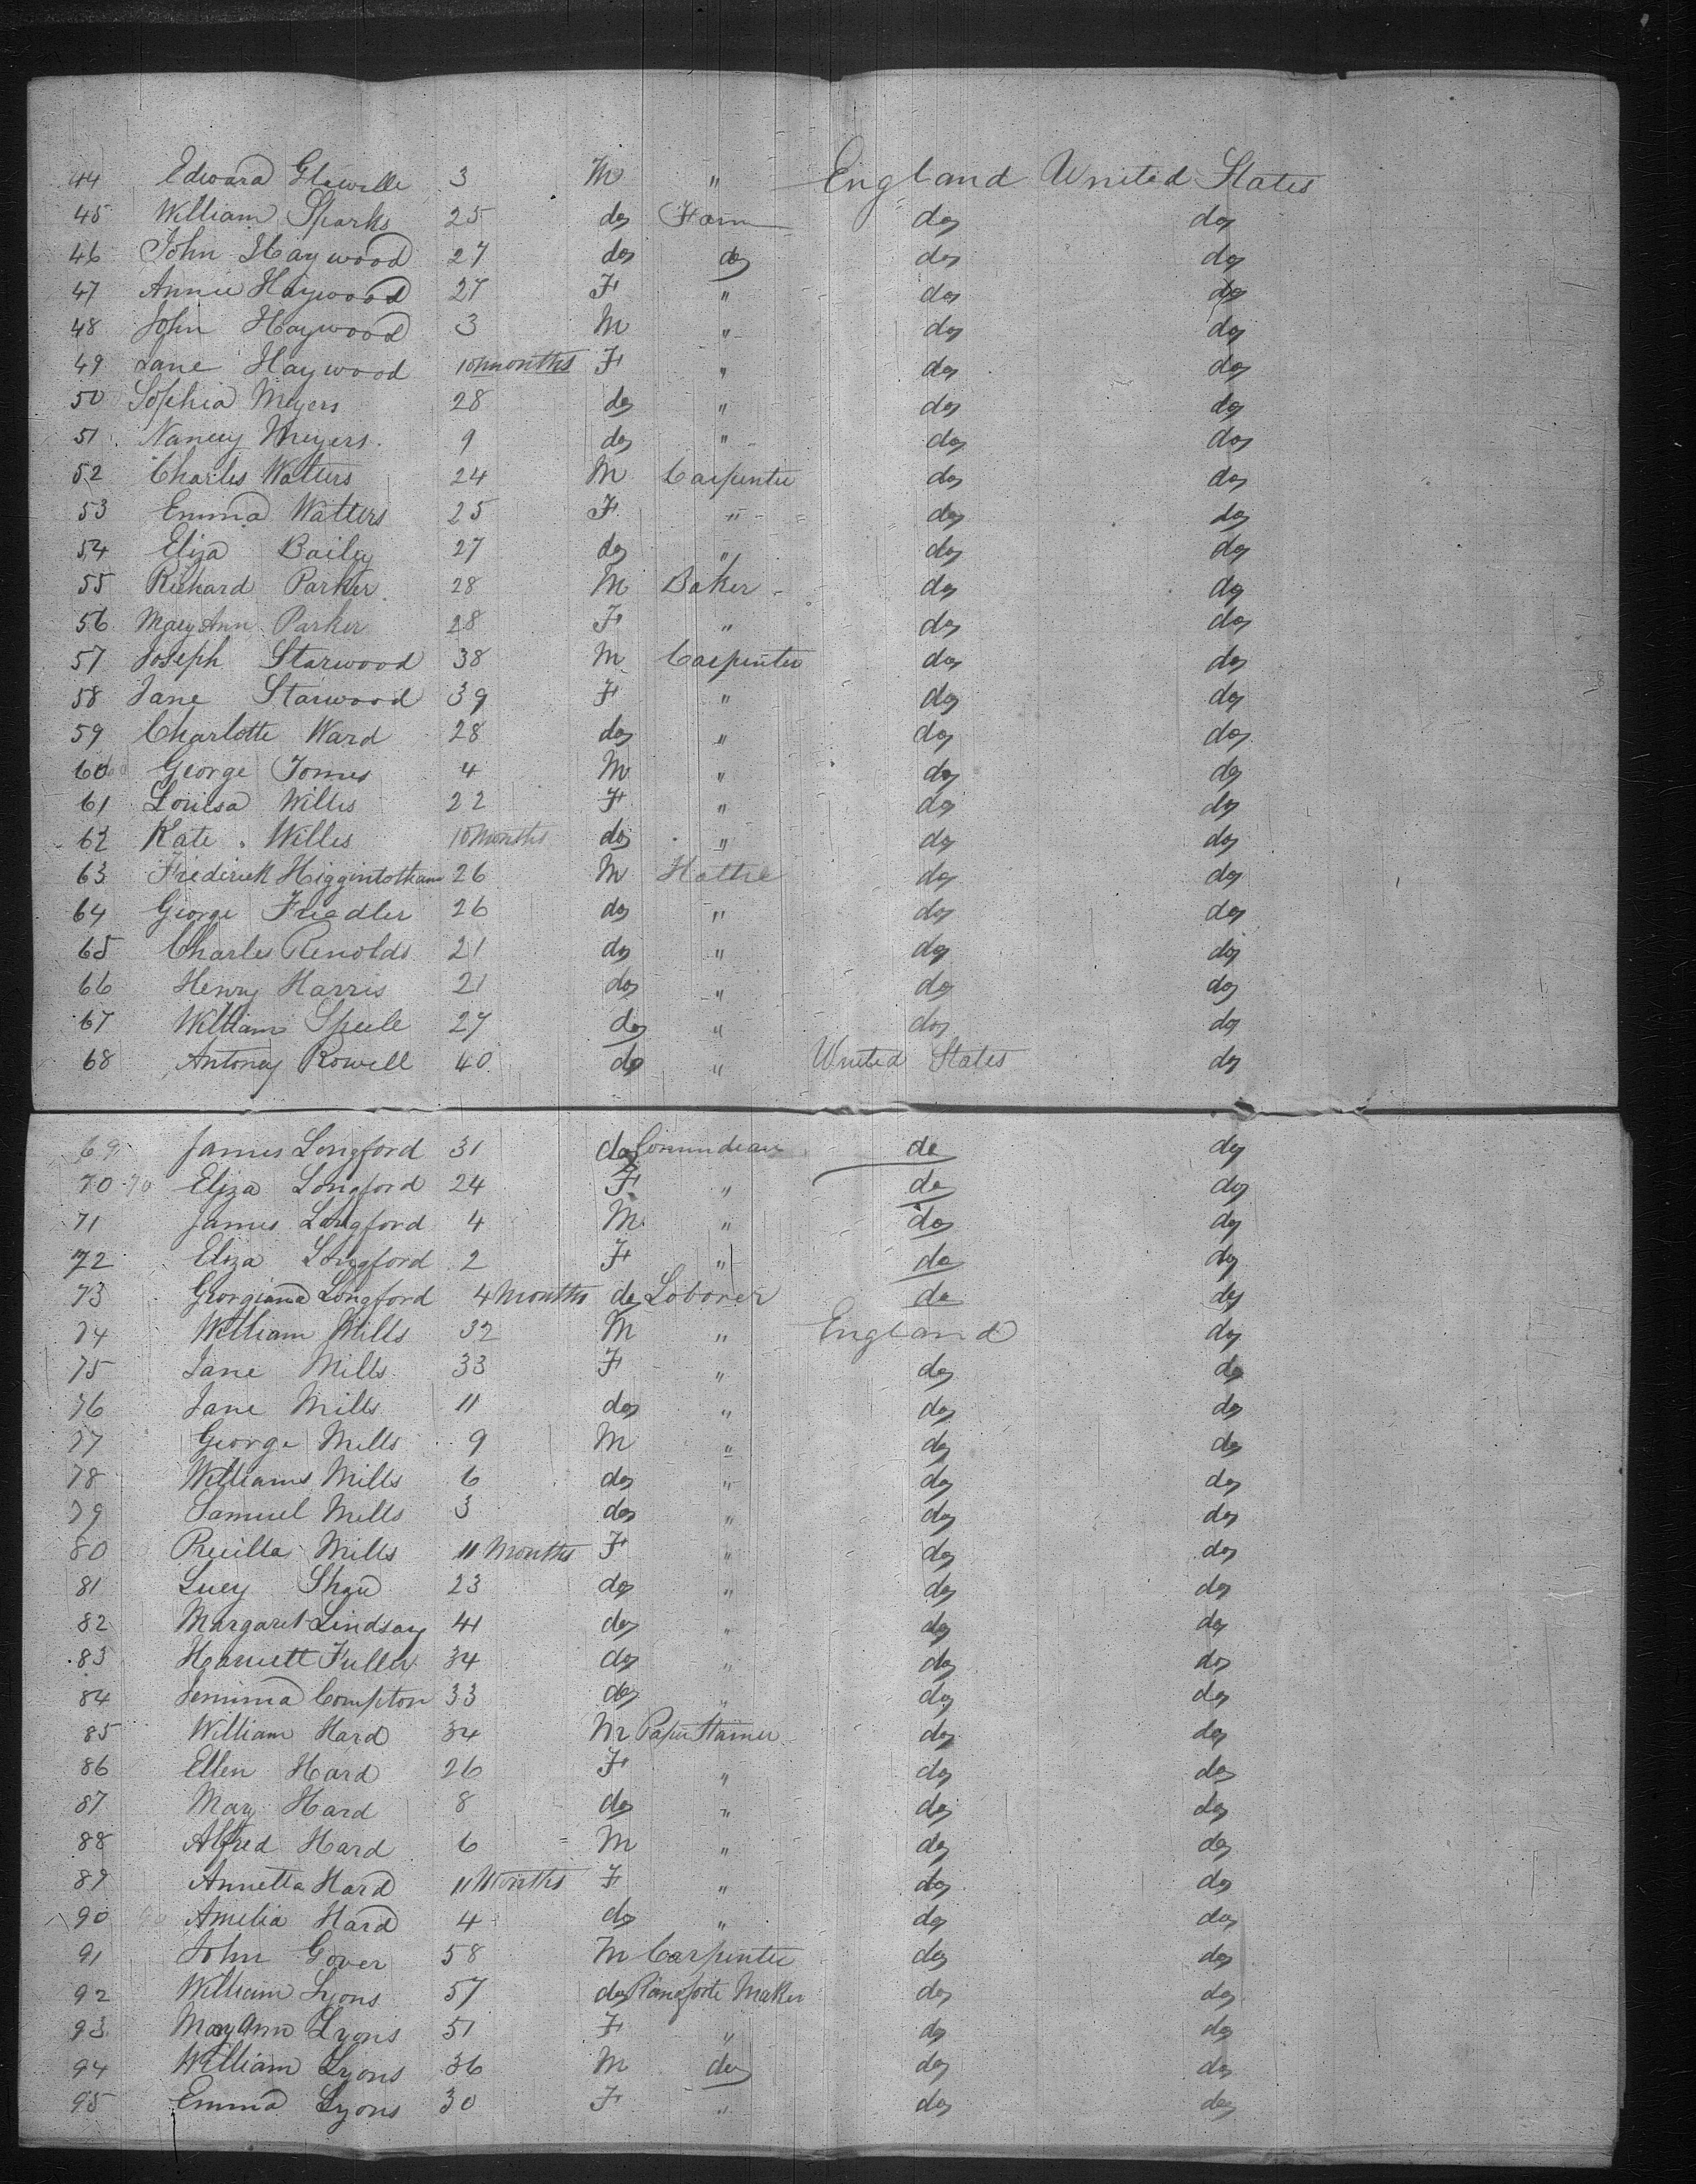 44 Edward Glewelle 3 M " England United States
45 William Sparks 25 do Farm do do
46 John Haywood 27 do do do do
47 Annie Haywood 27 F " do do
48 John Haywood 3 M " do do
49 Jane Haywood 10 months F " do do
50 Sophia Meyers 28 do " do do
51 Nancy Meyers. 9 do " do do
52 Charles Watters 24 M Carpenter do do
53 Emma Watters 25 F " do do
54 Eliza Bailey 27 do " do do
55 Richard Parker 28 M Baker do do
56 Mary Ann Parker 28 F " do do
57 Joseph Starwood 38 M Carpenter do do
58 Jane Starwood 39 F " do do
59 Charlotte Ward 28 do " do do
60 George Tomes 4 M " do do
61 Louisa Willis 22 F " do do
62 Kate Willis 10 Months do " do do
63 Frederick Higgintotham 26 M Hatter do do
64 George Friedler 26 do " do do
65 Charles Renolds 21 do " do do
66 Henry Harris 21 do " do do
67 William 27 do " do do
68 Antony Rowell 40 do " United States do
69 James Longford 31 do do do
70 70 Eliza Longford 24 F " do do
71 James Longford 4 M " do do
72 Eliza Longford 2 F " do do
73 Georgiana Longford 4 Months do Laborer do do
74 William Mills 32 M " England do
75 Jane Mills 33 F " do do
76 Jane Mills 11 do " do do
77 George Mills 9 M " do do
78 Williams Mills 6 do " do do
79 Samuel Mills 3 do " do do
80 Precilla Mills 11 Months F " do do
81 Lucy Shaw 23 do " do do
82 Margaret Lindsay 41 do " do do
83 Harriett Fuller 34 do " do do
84 Jemima Compton 33 do " do do
85 William Hard 34 M Paper Stainer do do
86 Ellen Hard 26 F " do do
87 Mary Hard 8 do " do do
88 Alfred Hard 6 M " do do
89 Annetta Hard 11 Months F " do do
90 90 Amelia Hard 4 do " do do
91 John Gover 58 M Carpenter do do
92 William Lyons 57 do Pianoforte Maker do do
93 Mary Ann Lyons 51 F " do do
94 William Lyons 36 M do do do
95 Emma Lyons 30 F " do do